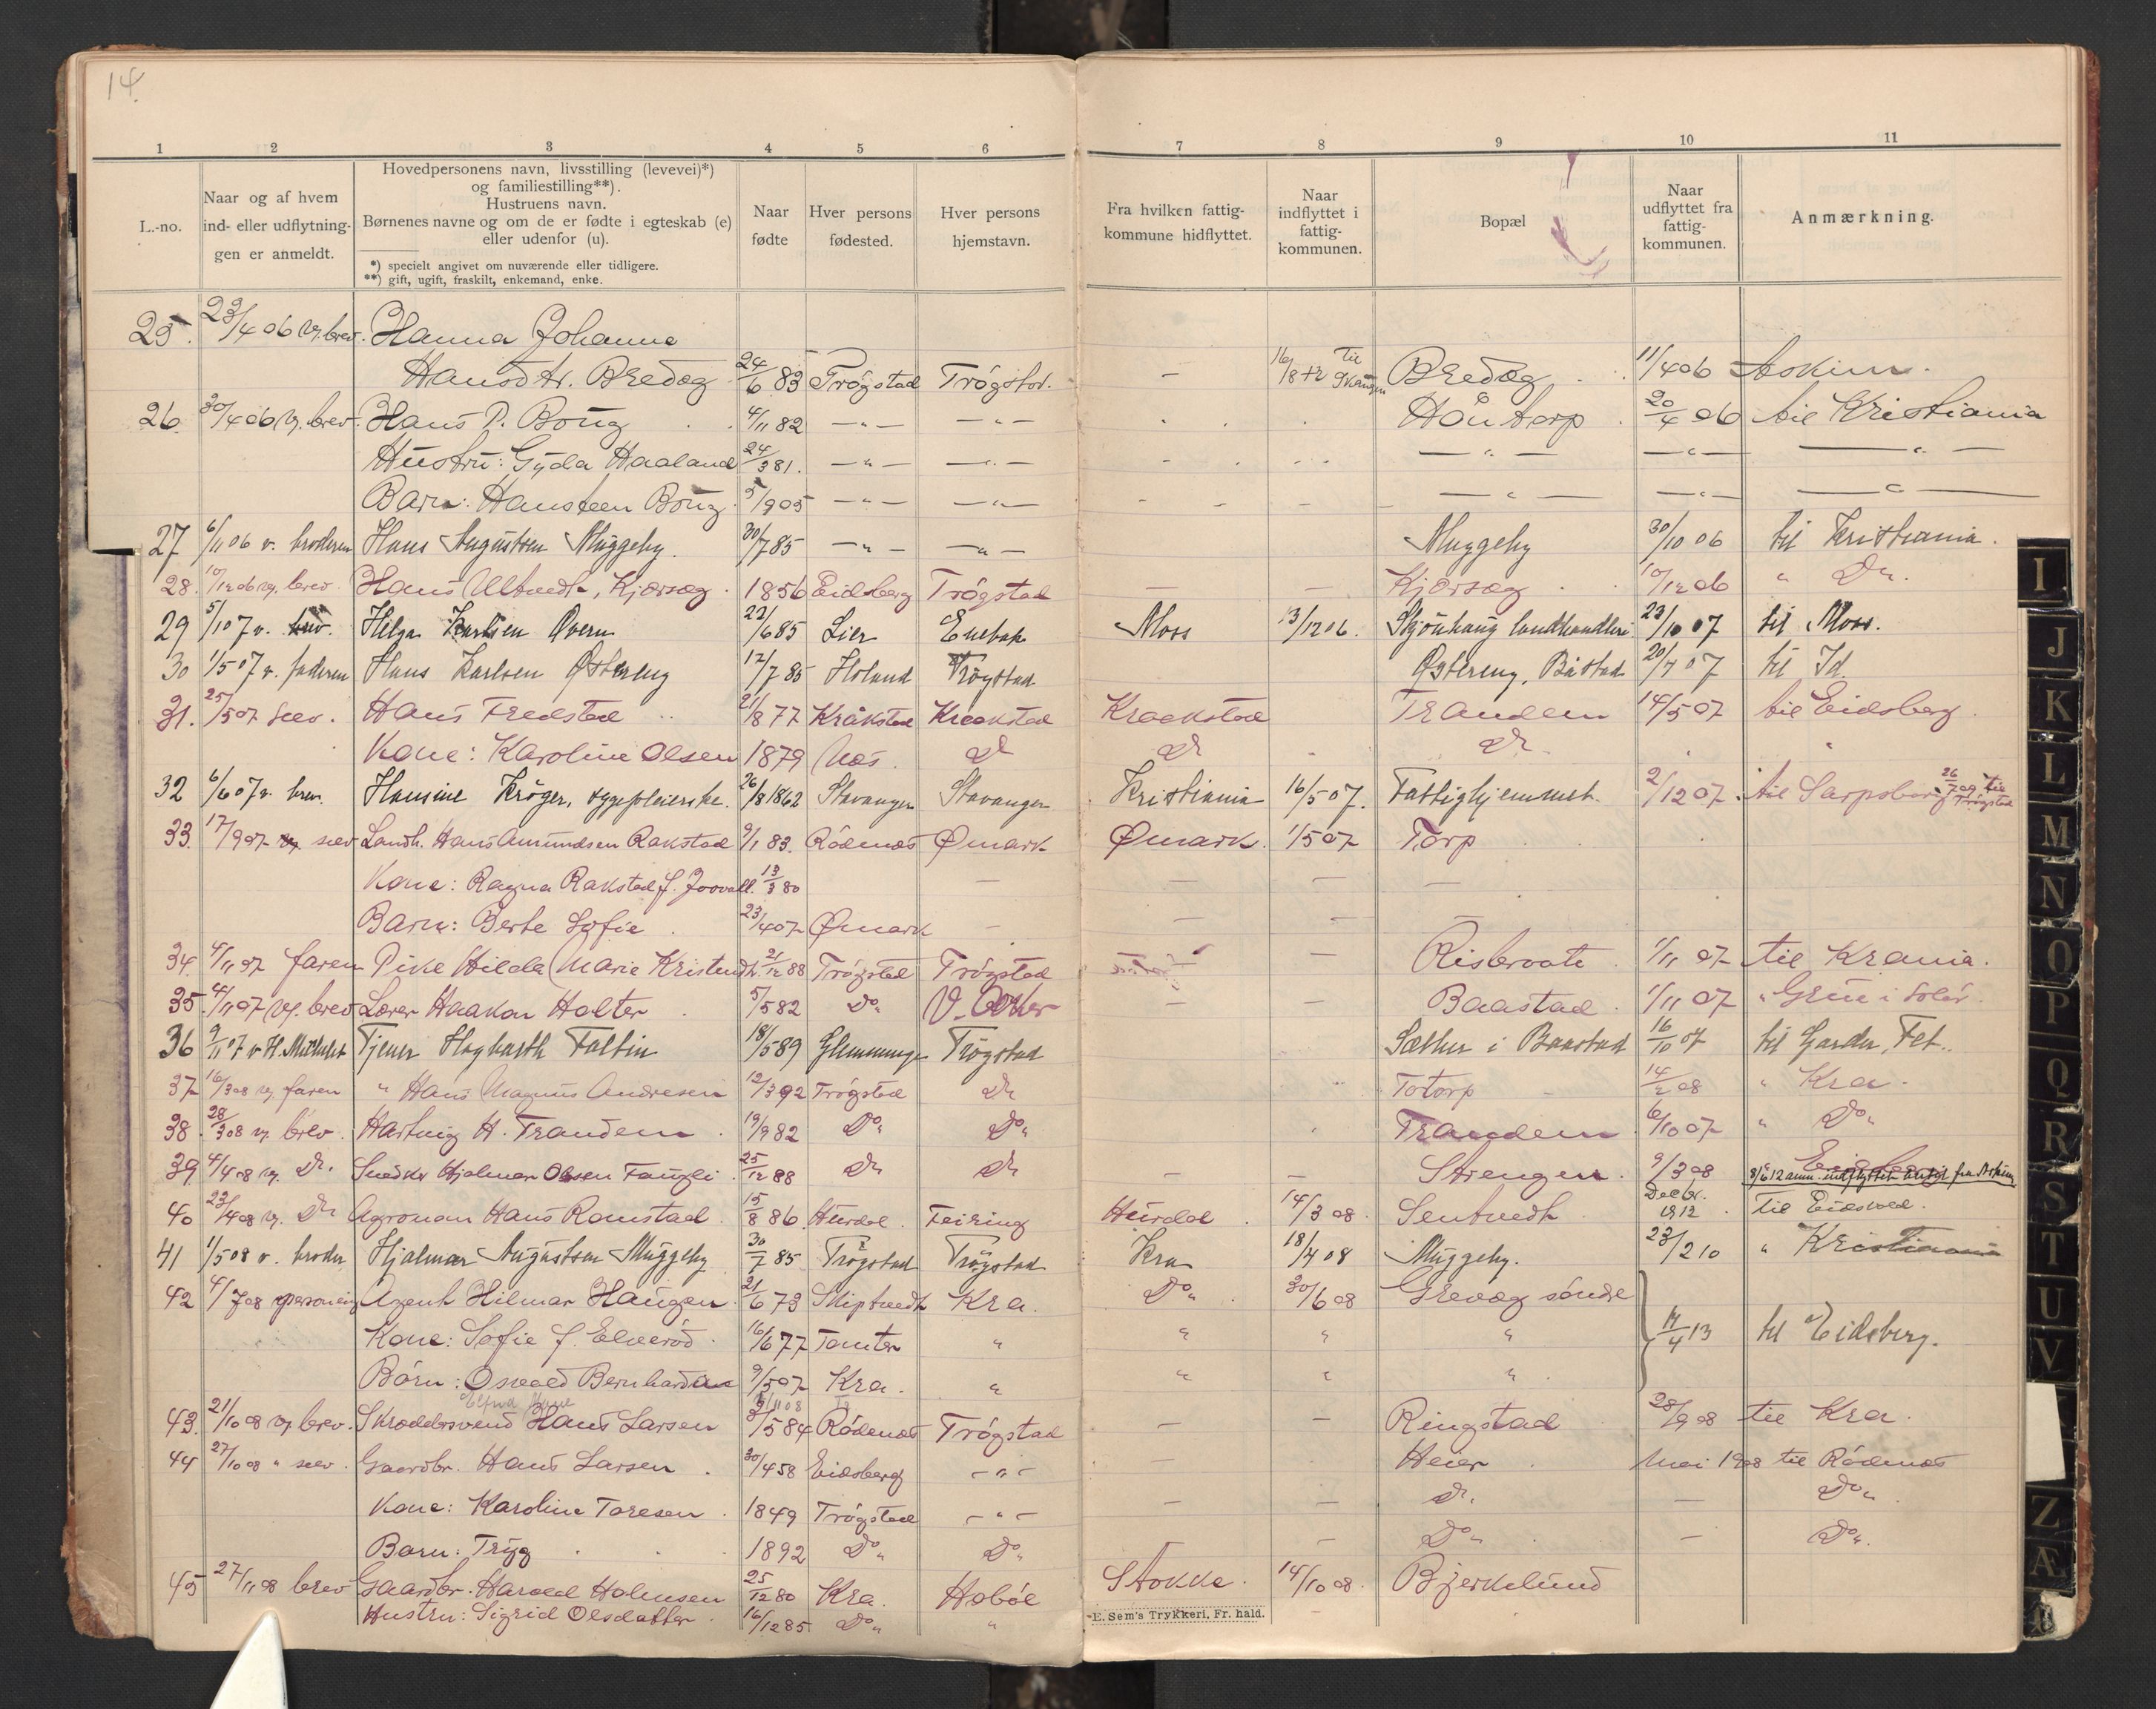 14.
1 2 3 4 5 6 7 8 9 10 11
L.-no.
Naar og af hvem
ind- eller udflytnin-
gen er anmeldt.
Hovedpersonens navn, livsstilling (levevei)*)
og familiestilling**).
Hustruens navn.
Børnenes navne og om de er fødte i egteskab (e)
eller udenfor (u).
*) specielt angivet om nuværende eller tidligere.
**) gift, ugift, fraskilt, enkemand, enke.
Naar
fødte
Hver persons
fødested.
Hver persons
hjemstavn.
Fra hvilken fattig-
kommune hidflyttet.
Naar
indflyttet i
fattig-
kommunen.
Bopæl
Naar
udflyttet fra
fattig-
kommunen.
Anmærkning.
25. 23/4 06 v. brev. Hanna Johanne
Hansdtr. Bredæg 24/6 83 Trøgstad Trøgstad. — 16/8 12 til Skaugen Bredæg 11/4 06 Askim.
26. 30/4 06 v. brev. Hans P. Boug 4/11 82 —"— —"— Høntorp 20/4 06 til Kristiania
Hustru: Gyda Haaland 24/3 81. —"— —"— —"— —"— —"—
Barn: Hansteen Boug 5/9 05 —"— —"— —"— —"— —"—
27 6/11 06 v. broderen Hans Augustsen Muggeby. 30/7 85 —"— —"— Muggeby 30/10 06 til Kristiania.
28. 10/12 06 v. brev. Hans Ultvedt, Kjørsæg 1856 Eidsberg Trøgstad — — Kjørsæg 10/12 06 " Do.
29 5/10 7 v. brev. Helga Karlsen Øvern 22/6 85 Lier Enebak Moss 13/12 06. Skjønhaug landhandleri 23/10 07 til Moss.
30 1/5 07 v. faderen Hans Karlsen Østereng 12/7 85 Høland Trøgstad Østereng, Båstad 20/4 07 til Id.
31. 25/5 07 selv. Hans Fredstad 21/8 77 Kråkstad Kraakstad Kraakstad Trandem 14/5 07 til Eidsberg
Kone: Karoline Olsen 1879 Næs. Do Do Do "
32 6/6 07 v. brev. Hansine Krøger, sygepleierske. 26/8 1862 Stavanger Stavanger Kristiania 16/5 07. Fattighjemmet. 2/12 07. til Sarpsborg 26/7 09 til Trøgstad
33. 17/9 07 v. selv Landh. Hans Amundsen Rakstad 9/1 83. Rødenæs Ømark Ømark. 1/5 07 Torp
Kone: Ragna Rakstad f. Joovall. 13/3 80 — — — —
Barn: Berte Sofie 23/4 07 Ømark — — — —
34. 4/11 07 faren Pike Hilda Marie Kristendt. 21/12 88 Trøgstad Trøgstad — Risbroate 1/11 07 til Krania.
35. 4/11 07 v. brev Lærer Haakon Holter 5/5 82 Do. V. Aker — — Baastad 1/11 07 " Grue i Solør.
36 9/11 07 v. H. Michelet Tjener Hagbarth Faltin 18/5 89 Glemminge Trøgstad Sæther i Baastad 16/10 07 til Garder, Fet.
37 16/3 08 v. faren " Hans Magnus Andresen 12/3 92 Trøgstad Do Totorp 14/2 08 " Kra.
38. 28/3 08 v. brev. Hartvig H. Trandem 19/9 82 Do. Do. Trandem 6/10 07 " Do.
39 4/4 08 v. Do. Snedker Hjalmar Olsen Faugli 25/12 88 Do Do — — Strengen 9/3 08 8/6 12 anm. indflyttet hertil fra Askim
40 23/4 08 v. Do Agronom Hans Ramstad 15/8 86 Hurdal. Feiring Hurdal 14/3 08 Sentvedt Decbr. 1912 Til Eidsvold.
41 1/5 08 v. broder Hjalmar Augustsen Muggeby 30/7 85 Trøgstad Trøgstad Kra 18/4 08 Muggeby. 23/2 10 " Kristiania
42 4/7 08 personlig Agent Hilmar Haugen 21/6 73 Skiptvedt Kra. Do. 30/6 08 Grevæg søndre
Kone: Sofie f. Elverød. 16/6 77 Tomter " " " " 14/4 13 til Eidsberg.
Børn: Osvald Bernhard 9/5 07 Kra. " " " "
43. 21/10 08 v. brev. Skræddersvend Hans Larsen 3/5 84 Rødenæs Trøgstad — — Ringstad 28/9 08 til Kra.
44 27/10 08 " selv. Gaardbr. Hans Larsen 30/4 58 Eidsberg —"— — — Heier Mai 1908 til Rødenæs
Kone: Karoline Toresen 1849 Trøgstad —"— — — Do. — Do.
Barn: Tryg 1892 Do. Do. — Do. — Do.
45 27/11 08 brev Gaardbr. Harald Halmsen 25/12 80 Kra. Hobøl Stokke. 14/10 08. Bjerkelund
Hustru: Sigrid Olsdatter 16/12 85 Do. "
E. Sem's Trykkeri, Fr. hald.
I
J
K
L
M
N
O
P
Q
R
S
T
U
V
Z
Æ